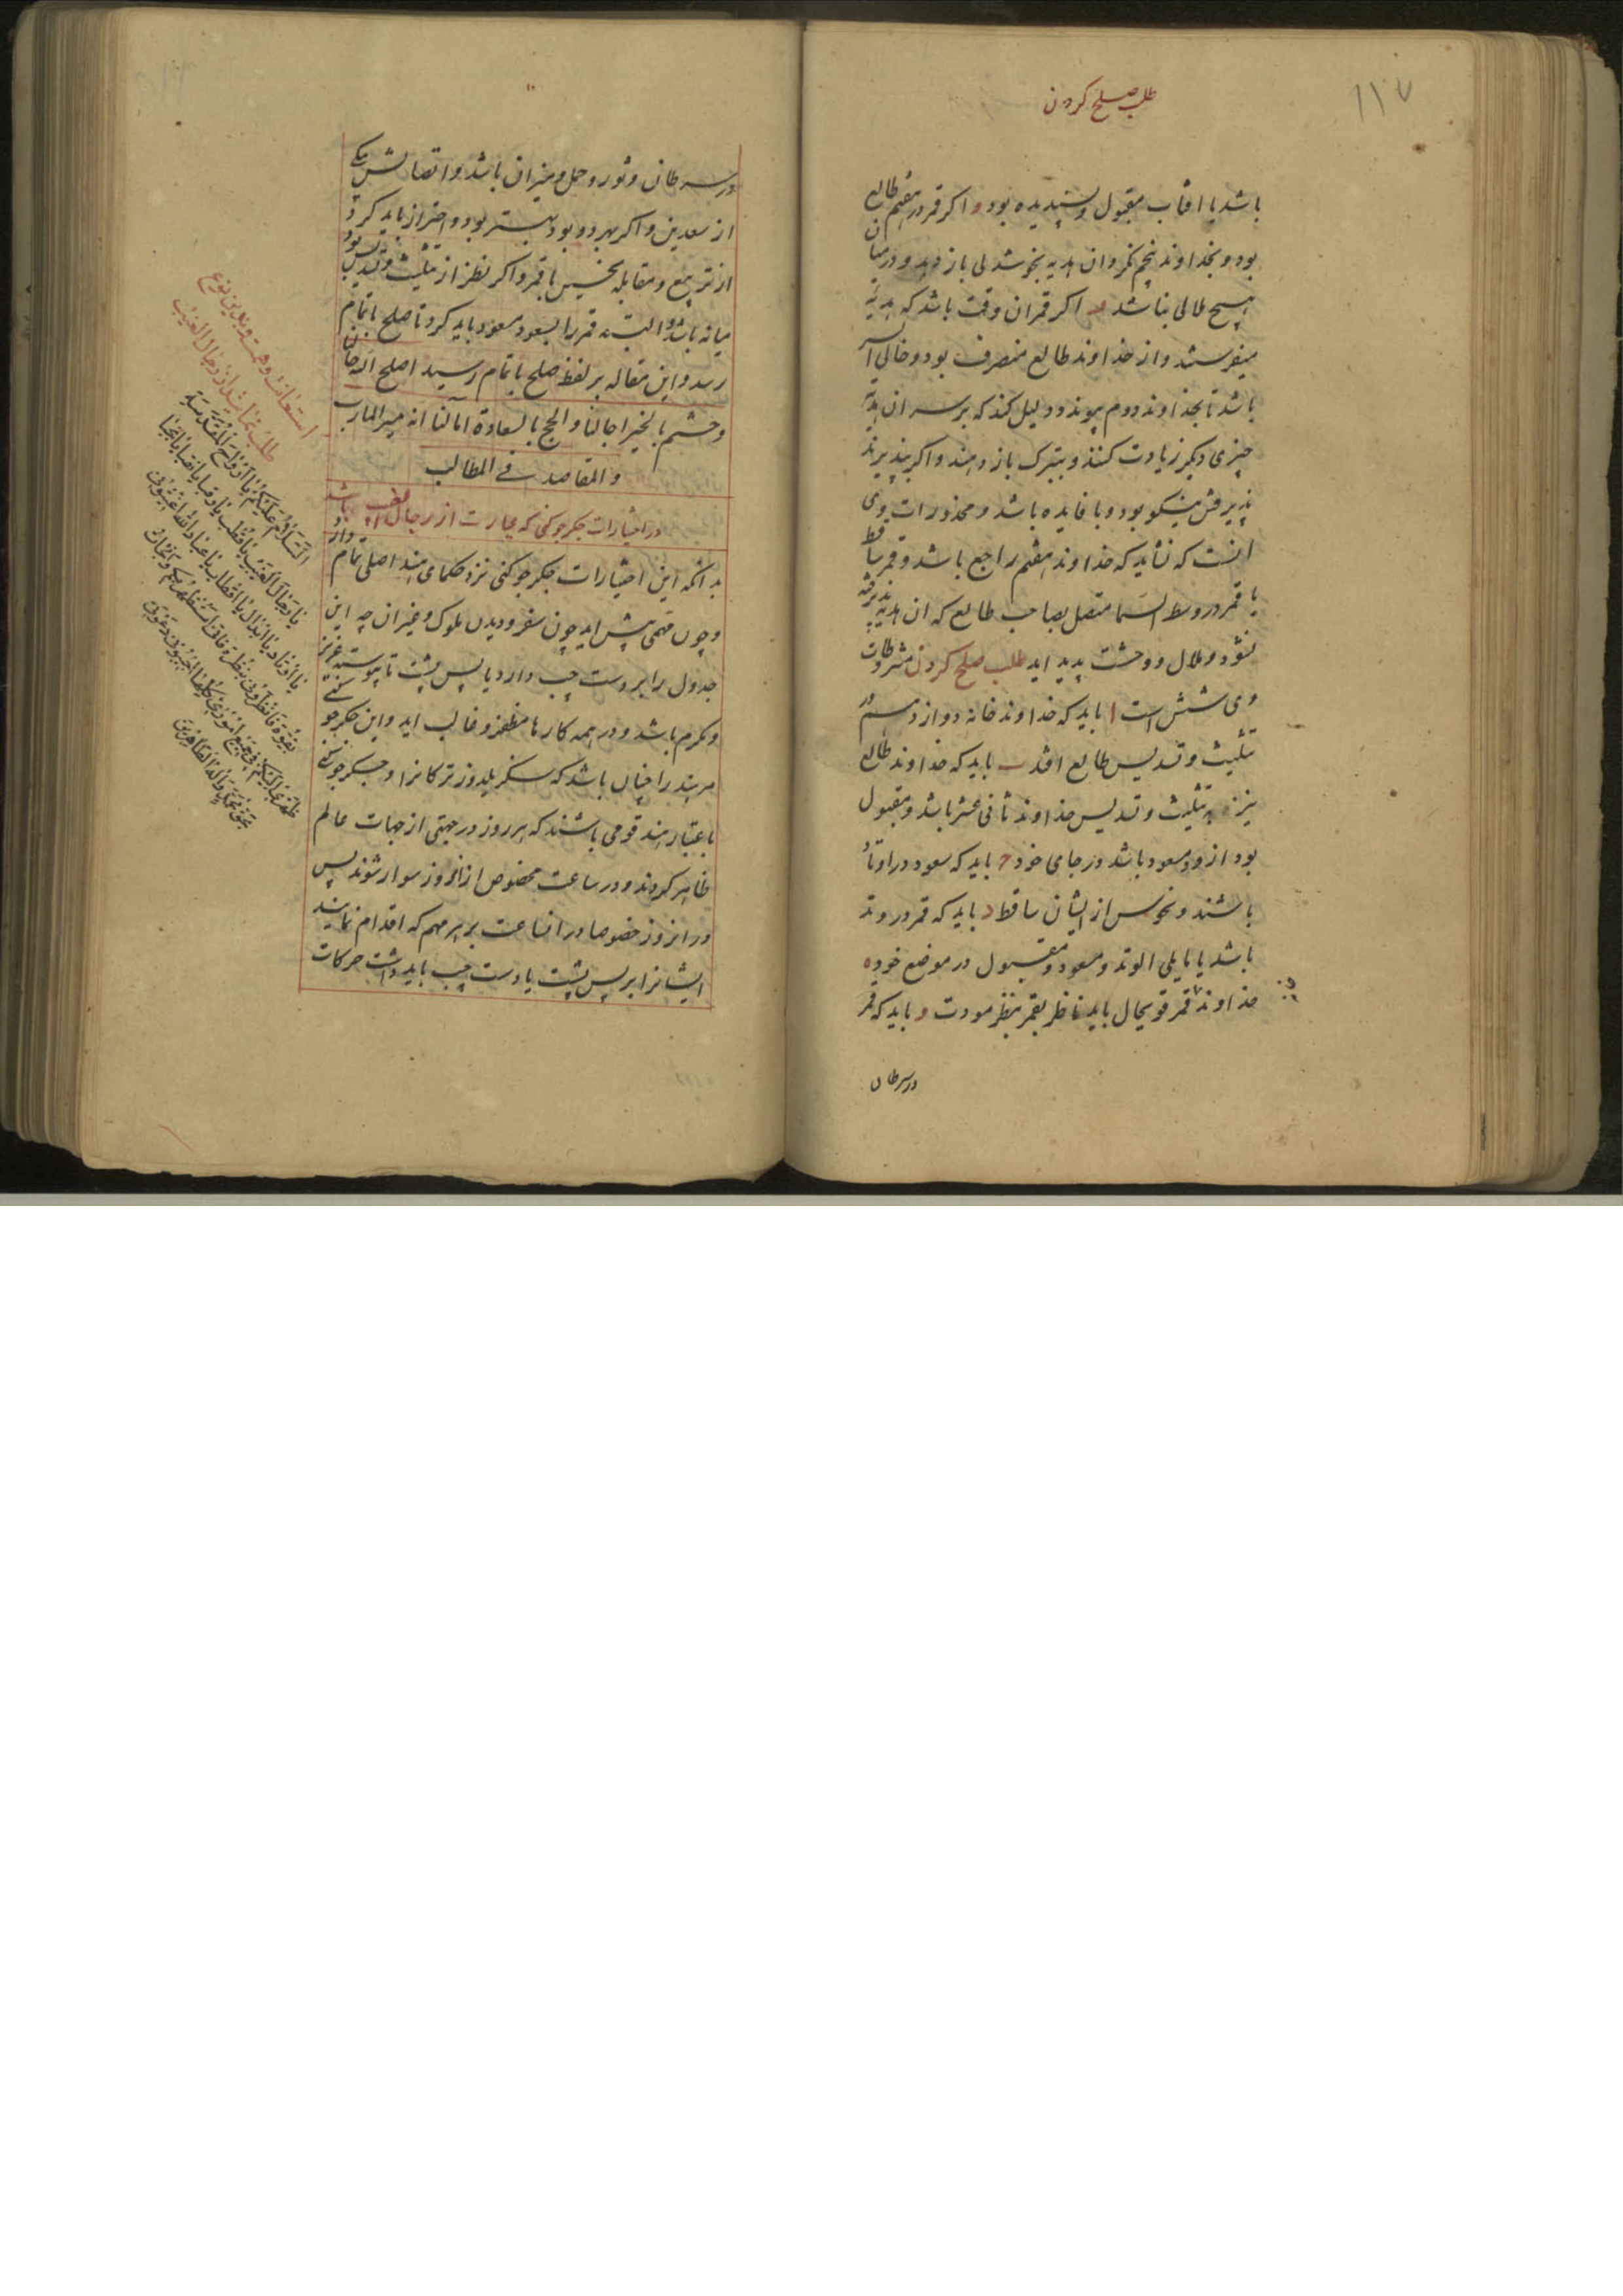 طلب صلح کردن
۱۱۷
باشد یا افتاب مقبول و پسندیده بود و اکر قمر در هفتم طالع
بود و بخداوند پنجم نکرد ان هدیه بخوشدلی باز دهد و در میان
هیچ ملالی نباشد اکر قمر ان وقت باشد که هدیه
میفرستد و از خداوند طالع منصرف بود و خالی السیر
باشد تا بخداوند دوم پیوندد دلیل کند که بر سر ان هدیه
چیزی دیکر زیادت کنند و بتبرک باز دهند و اکر بپذیرند
پذیرفتن نیکو بود و با فایده باشد و محذورات وی
انست که نشاید که خداوند هفتم راجع باشد و قمر ساقط
یا قمر در وسط السما متصل بصاحب طالع که ان هدیه پذیرفته
نشود و ملال و وحشت پدید اید طلب صلح کردن مشروطات
وی شش است ا باید که خداوند خانه دوازدهم در
تثلیث و تسدیس طالع افتد ب باید که خداوند طالع
نیز به تثلیث و تسدیس خداوند ثانی عشر باشد و مقبول
بود ازو و مسعود باشد در جای خود ج باید که سعود در اوتاد
باشند و نحوس از ایشان ساقط د باید که قمر در وتد
باشد یا مایلی الوتد و مسعود و مقبول در موضع خود ه
خداوند قمر قوی حال باید ناظر بقمر بنظر مودت و باید که قمر
در سرطان
در سرطان و ثور و حمل و میزان باشد و اتصالش بیکی
از سعدین و اکر بهر دو بود بهتر بود و احتراز باید کرد
از تربیع و مقابله نحسین با قمر و اکر نظر از تثلیث و تسدیس بود
میانه باشد و البته قمر را بسعود مسعود باید کرد تا صلح باتمام
رسد و این مقاله بر لفظ صلح باتمام رسید اصلح الله حالنا
و ختم بالخیر اجالنا و انجح بالسعادة امالنا انه میسر المارب
و المقاصد فی المطالب
در اختیارات جکرجوکنی که عبارت از رجال الغیب باشد
بدانکه این اختیارات جکرجوکنی نزد حکمای هند اصلی تمام دارد
و چون مهمی پیش اید چون سفر و دیدن ملوک و غیر ان چه این
جدول را بر دست چپ دارد یا پس پشت تا پیوسته عزیز
و مکرم باشد و در همه کارها مظفر و غالب اید و این جکرجوکنی
مر هند را چنان باشد که سکز یلدوز ترکانرا و جکرجوکنی
باعتبار هند قومی باشند که هر روز در جهتی از جهات عالم
ظاهر کردند و در ساعت مخصوص از انروز سوار شوند پس
در انروز خصوصا در انساعت بر هر مهم که اقدام نمایند
ایشانرا بر پس پشت یا دست چپ باید داشت حرکات
استعانت و همت و بدین نوع
طلب نماید از رجال الغیب
السلام علیکم یا ارواح المقدسة
یا رجال الغیب یا قطب یا رقبا یا نقبا یا نجبا
یا اوتاد یا ابدال یا اقطاب یا عباد الله اغیثونی
بقوة فانظرونی بنظرة فانی استظهر بکم